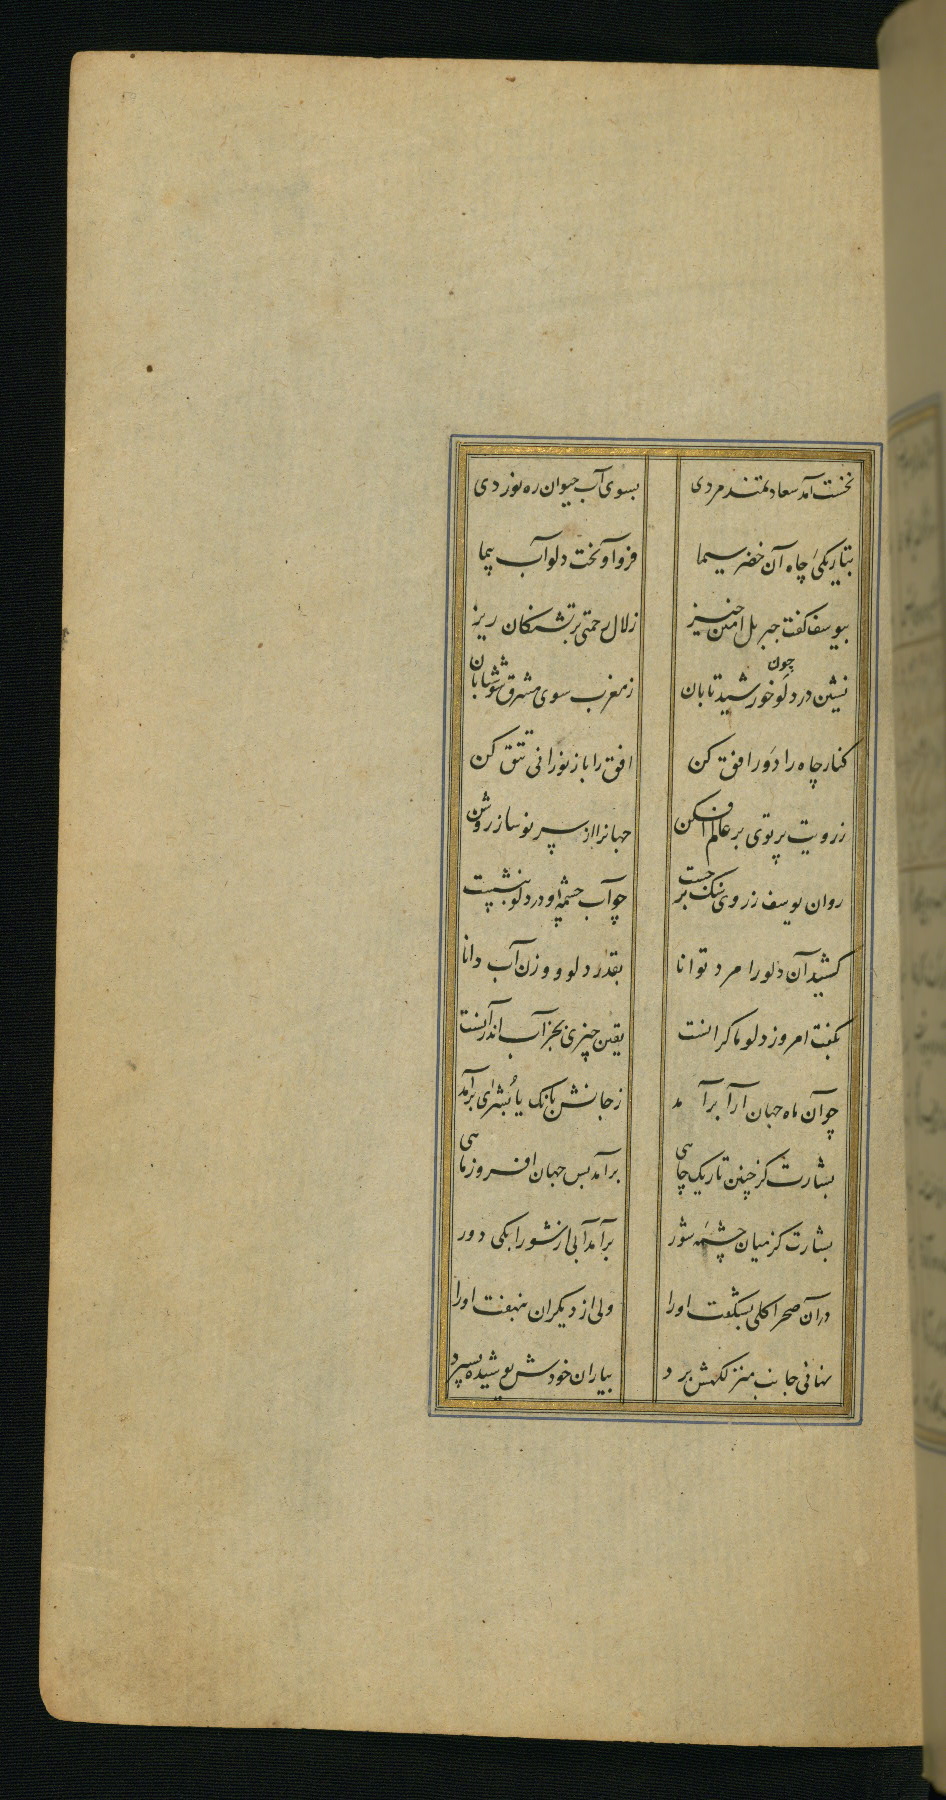 نخست آمد سعادتمند مردی بسوی آب حیوان ره نوردی
بتاریکیٔ چاه آن خضر سیما فرو آویخت دلو آب پیما
بیوسف گفت جبریل امین خیز زلال رحمتی بر تشنکان ریز
نشین در دلو چون خورشید تابان ز مغرب سوی مشرق شو شتابان
کنار چاه را دور افق کن افق را باز نورانی تتق کن
ز رویت پرتوی بر عالم افکن جهانرا از سر نو ساز روشن
روان یوسف ز روی سنک برجست چو آب چشمهٔ او در دلو بنشست
کشید آن دلو را مرد توانا بقدر دلو و وزن آب دانا
بگفت امروز دلو ما کرانست یقین چیزی بجز آب اندر آنست
چو آن ماه جهان آرا برآمد ز جانش بانک یا بُشرٰای برآمد
بشارت کز چنین تاریک چاهی برآمد بس جهان افروز ماهی
بشارت کز میان چشمهٔ شور برآمد آبی از شورابکی دور
در آن صحرا کلی بشکفت او را ولی از دیکران بنهفت او را
نهانی جانب منزلکهش برد بیاران خودش پوشیده بسپرد